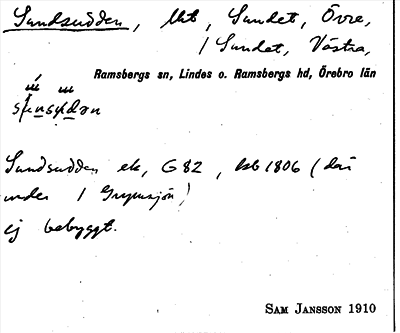 Sundsudden, lht, Sundet, Övre,
/ Sundet, Västra,
Ramsbergs sn, Lindes o. Ramsbergs hd, Örebro län
Sundsudden ek, G 82, hfb 1806 (där
under / Grymsjön)
ej bebyggt.
SAM JANSSON 1910